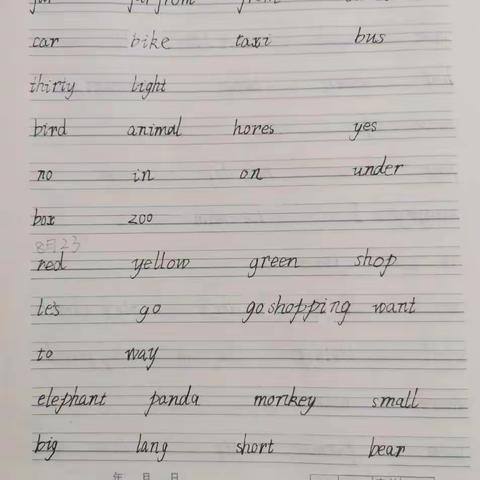 far far from from
car bike taxi bus
thirty light
bird animal hores yes
no in on under
box zoo
8月23
red yellow green shop
let's go go shopping want
to way
elephant panda monkey small
big lang short bear
年 月 日